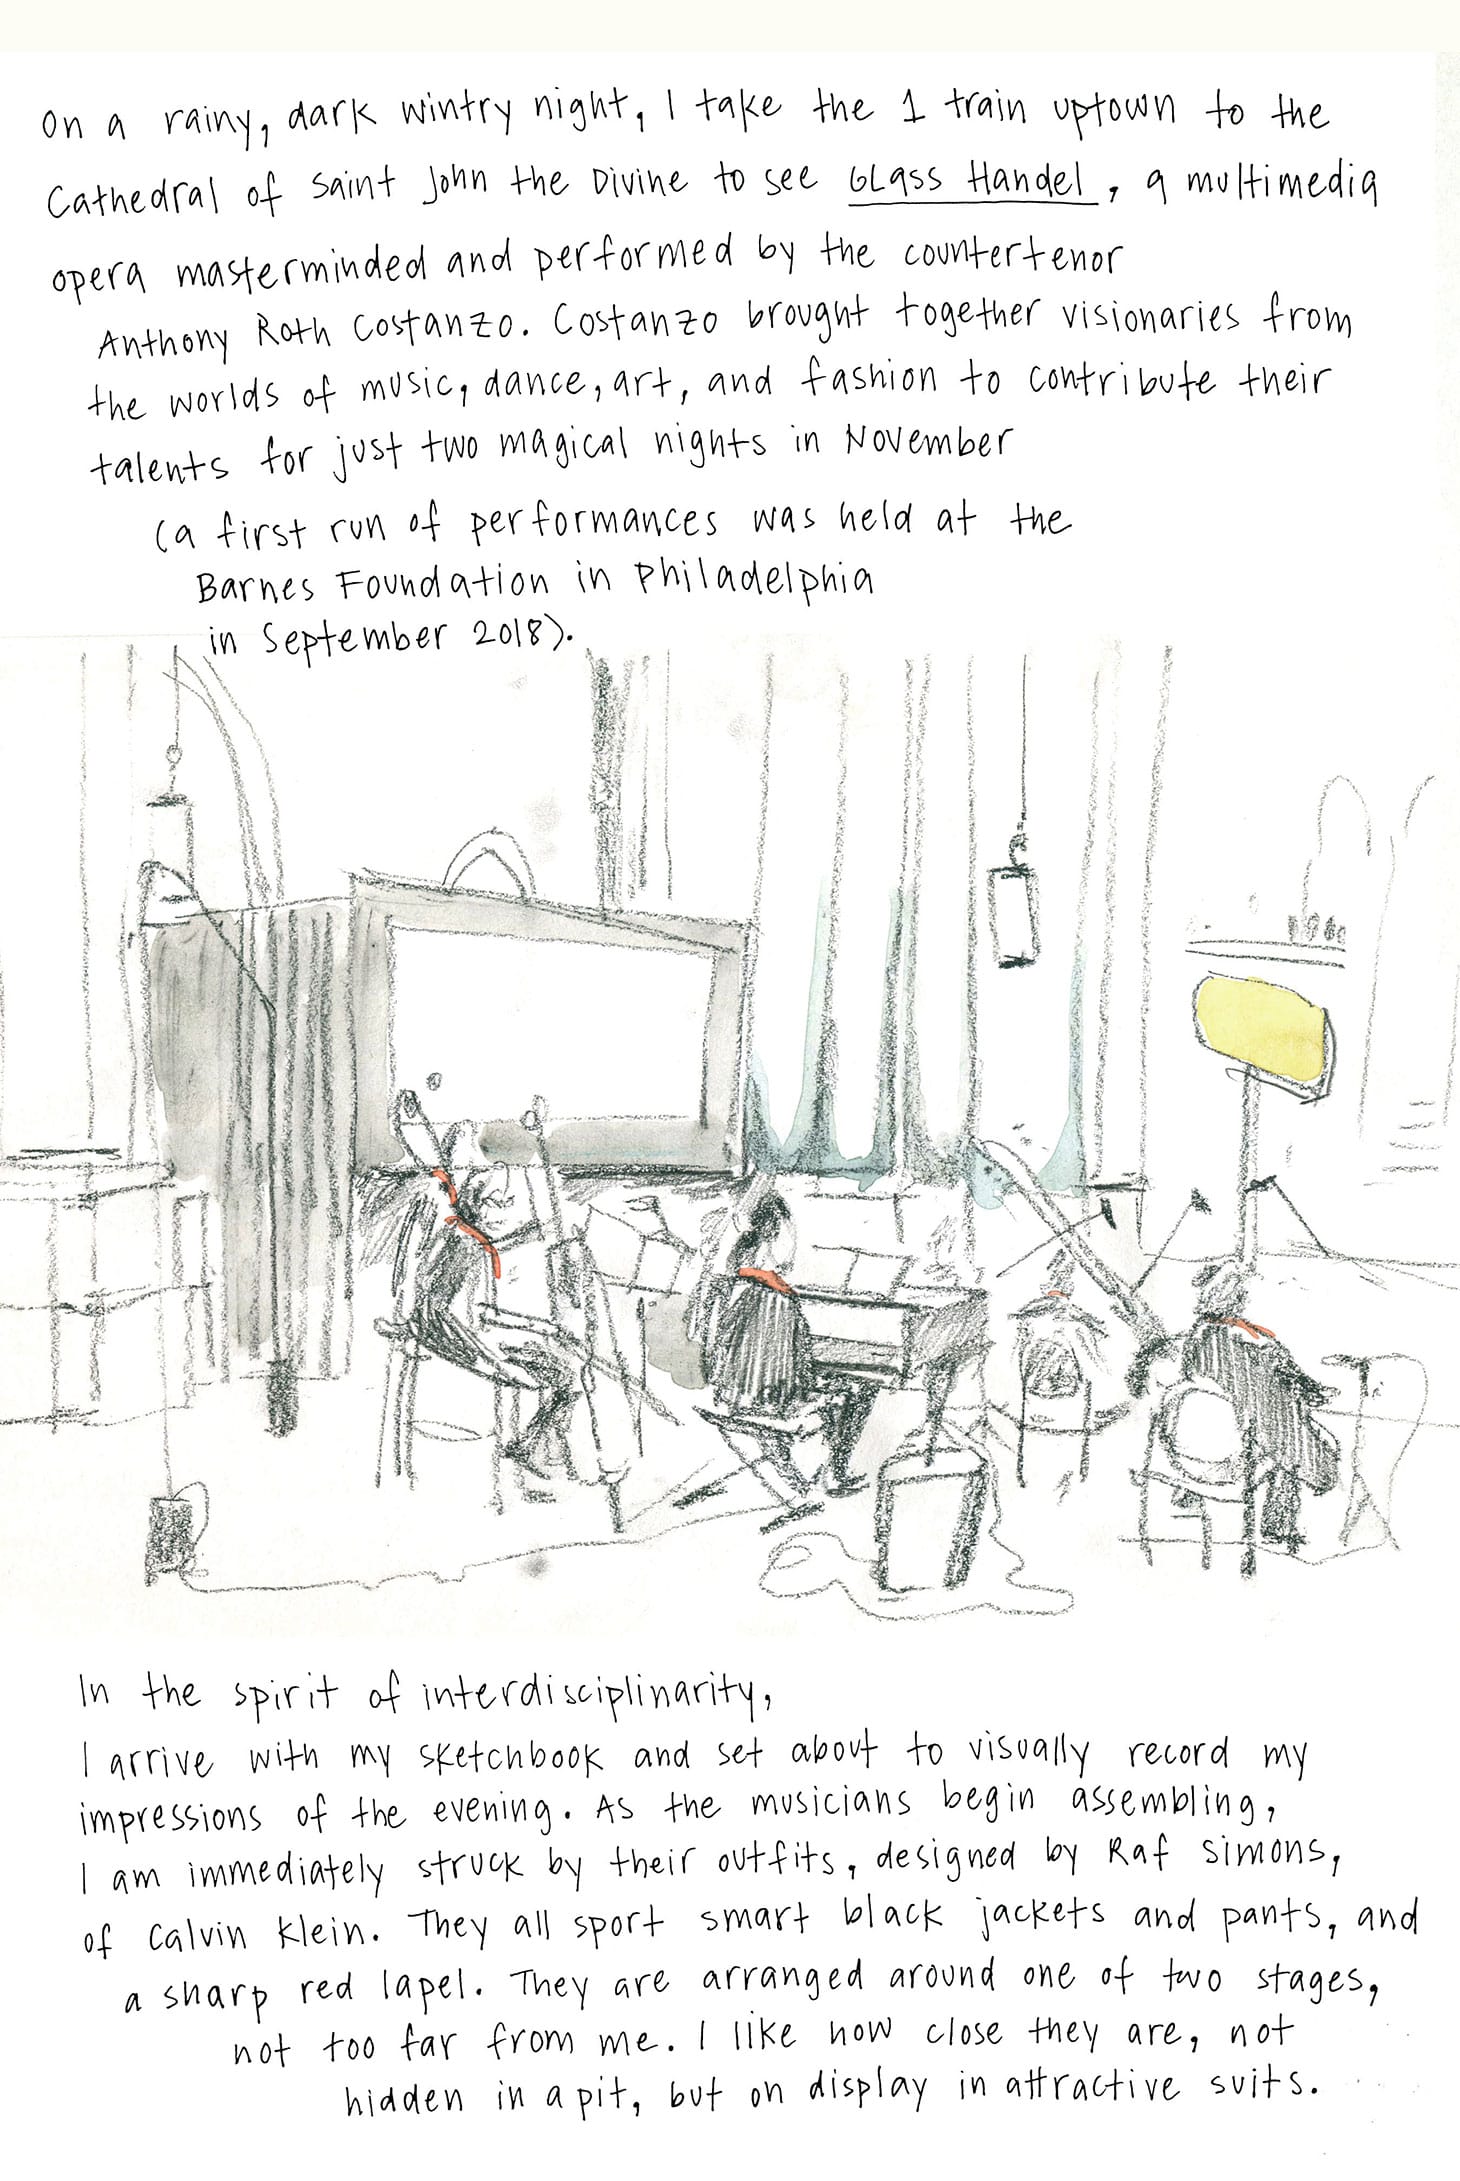 On a rainy, dark wintry night, I take the 1 train uptown to the
Cathedral of Saint John the Divine to see Glass Handel, a multimedia
opera masterminded and performed by the countertenor
Anthony Roth Costanzo. Costanzo brought together visionaries from
the worlds of music, dance, art, and fashion to contribute their
talents for just two magical nights in November
(a first run of performances was held at the
Barnes Foundation in Philadelphia
in September 2018).
In the spirit of interdisciplinarity,
I arrive with my sketchbook and set about to visually record my
impressions of the evening. As the musicians begin assembling,
I am immediately struck by their outfits, designed by Raf Simons,
of Calvin Klein. They all sport smart black jackets and pants, and
a sharp red lapel. They are arranged around one of two stages,
not too far from me. I like how close they are, not
hidden in a pit, but on display in attractive suits.